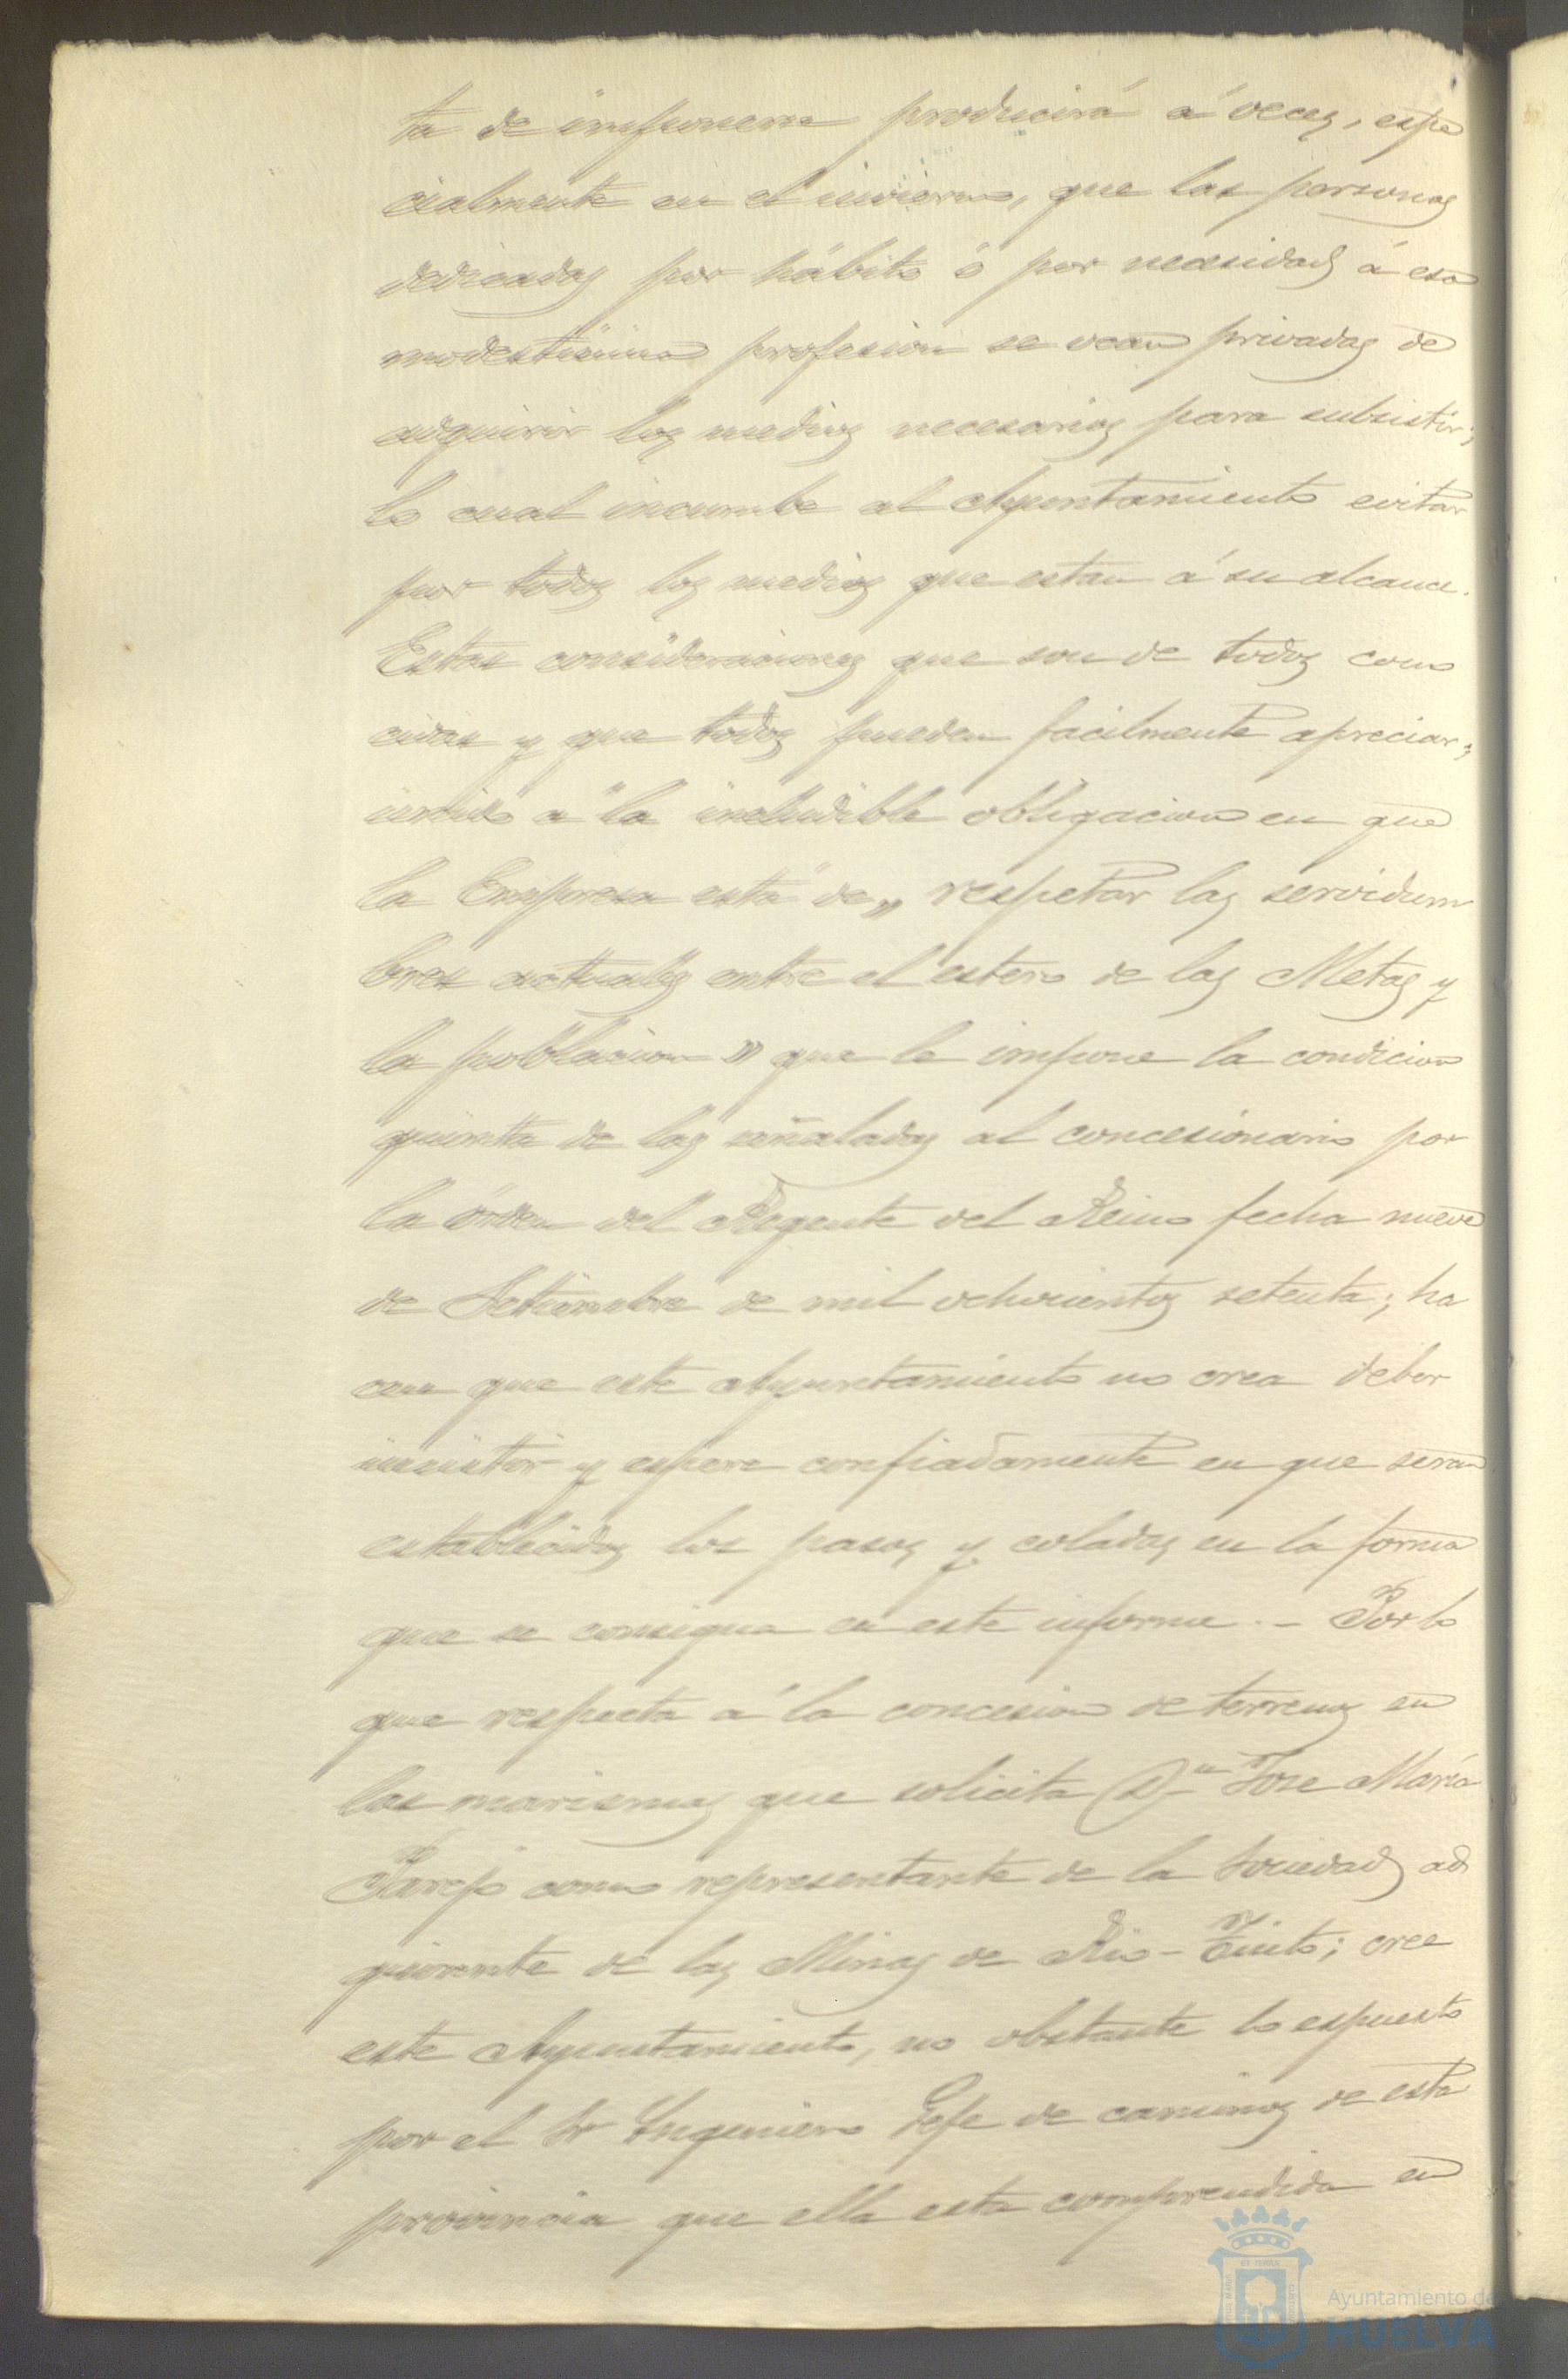 ta de imponerse producirá á veces, espe
cialmente en el invierno, que las personas
dedicadas por hábito ó por necesidad á esa
modestisima profesion se vean privadas de
adquirir los medios necesarios para subsistir;
lo cual incumbe al Ayuntamiento evitar
por todos los medios que estan á su alcance.
Estas consideraciones que son de todos cono
cidas y que todos pueden facilmente apreciar;
unido a la ineludible obligacion en que
la Empresa está de „ respetar las servidum
bres actuales entre el estero de las Metas y
la poblacion » que le impone la condicion
quinta de las señaladas al concesionario por
la órden del Regente del Reino fecha nueve
de Setiembre de mil ochocientos setenta; ha
cen que este Ayuntamiento no crea deber
insistir y espere confiadamente en que seran
establecidos los pasos y coladas en la forma
que se consigna en este informe. - Por lo
que respecta á la concesion de terrenos en
las marismas que solicita Dn Jose María
Parejo como representante de la Sociedad ad
quirente de las Minas de Rio-Tinto; cree
este Ayuntamiento, no obstante lo espuesto
por el Sr Ingeniero Gefe de caminos de esta
provincia que ella esta comprendida en
Ayuntamiento de
HUELVA